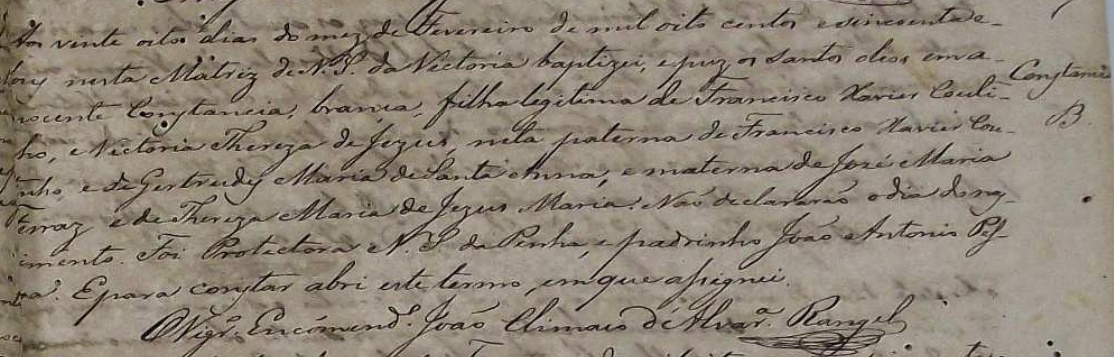 Aos vinte oito dias do mez de Fevereiro de mil oito centos e sincoenta e
dous nesta Matriz de N. S. da Victoria baptizei, e puz os santos oleos em a
nocente Constancia, branca, filha legitima de Francisco Xavier Couti-
nho, e Victoria Thereza de Jezus, neta paterna de Francisco Xavier Cou-
tinho, e de Gertrudes Maria de Santa Anna, e materna de José Maria
Ferraz e de Thereza Maria de Jezus Maria. Não declararão o dia do nas-
cimento. Foi Protectora N. S. da Penha, e padrinho João Antonio Pes-
soa. E para constar abri este termo, em que assignei.
O Vigr.º Encómend.º João Climaco d'Alvar.ª Rangel
Constancia
B.